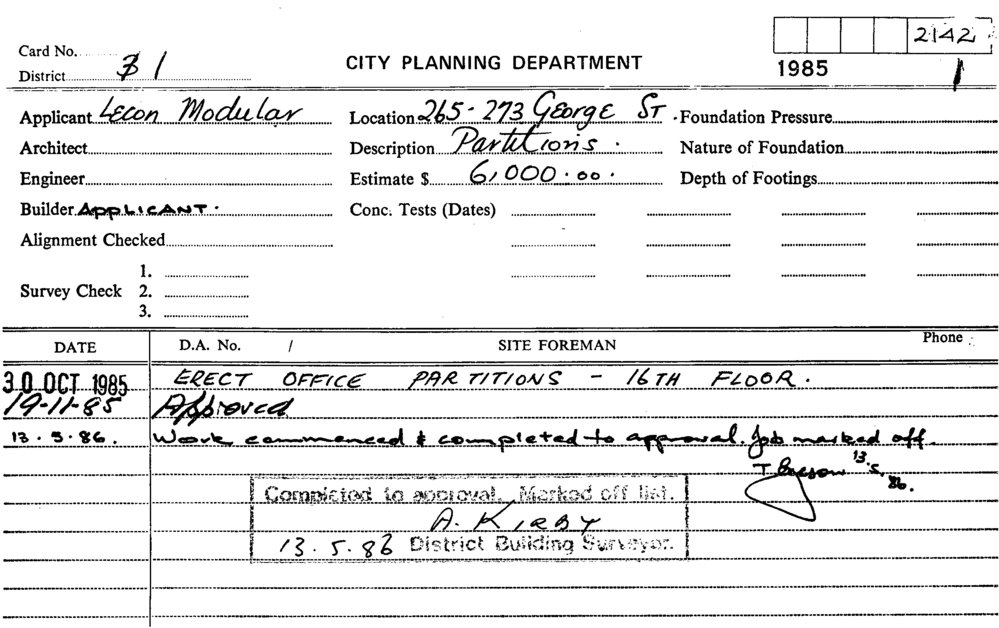 2142
Card No.
CITY PLANNING DEPARTMENT
District 1
1985 1
Applicant Lecon Modular Location 265-273 George St. Foundation Pressure
Architect Description Partitions. Nature of Foundation
Engineer Estimate $ 6,000.00. Depth of Footings
Builder APPLICANT. Conc. Tests (Dates)
Alignment Checked
1.
Survey Check 2.
3.
DATE D.A. No. / SITE FOREMAN Phone
30 OCT 1985 ERECT OFFICE PARTITIONS - 16TH FLOOR.
19-11-85 Approved
13.5.86. Work commenced & completed to approval. Job marked off.
T 13.5.86.
Completed to approval. Marked off list.
A. KIRBY
13.5.86 District Building Surveyor.